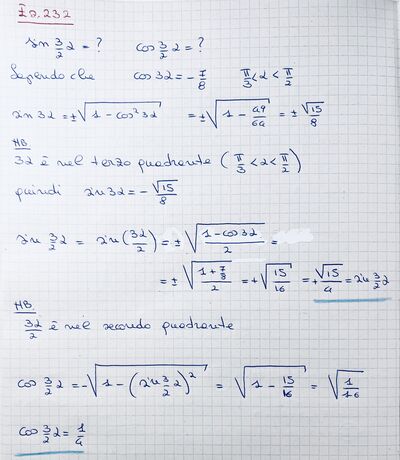 Es. 232
sin 3/2 α = ? cos 3/2 α = ?
Sapendo che cos 3α = - 7/8 π/3 < α < π/2
sin 3α = ± √(1 - cos² 3α) = ± √(1 - 49/64) = ± √15/8
NB
3α è nel terzo quadrante (π/3 < α < π/2)
quindi sin 3α = - √15/8
sin 3/2 α = sin (3α/2) = ± √((1 - cos 3α)/2) =
= ± √((1 + 7/8)/2) = + √(15/16) = + √15/4 = sin 3/2 α
NB
3α/2 è nel secondo quadrante
cos 3/2 α = - √(1 - (sin 3/2 α)²) = √(1 - 15/16) = √(1/16)
cos 3/2 α = 1/4